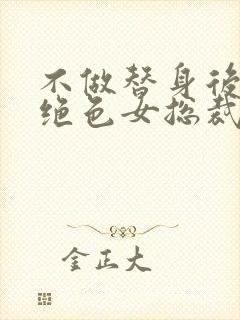 不做替身後
绝色女总裁
金正大